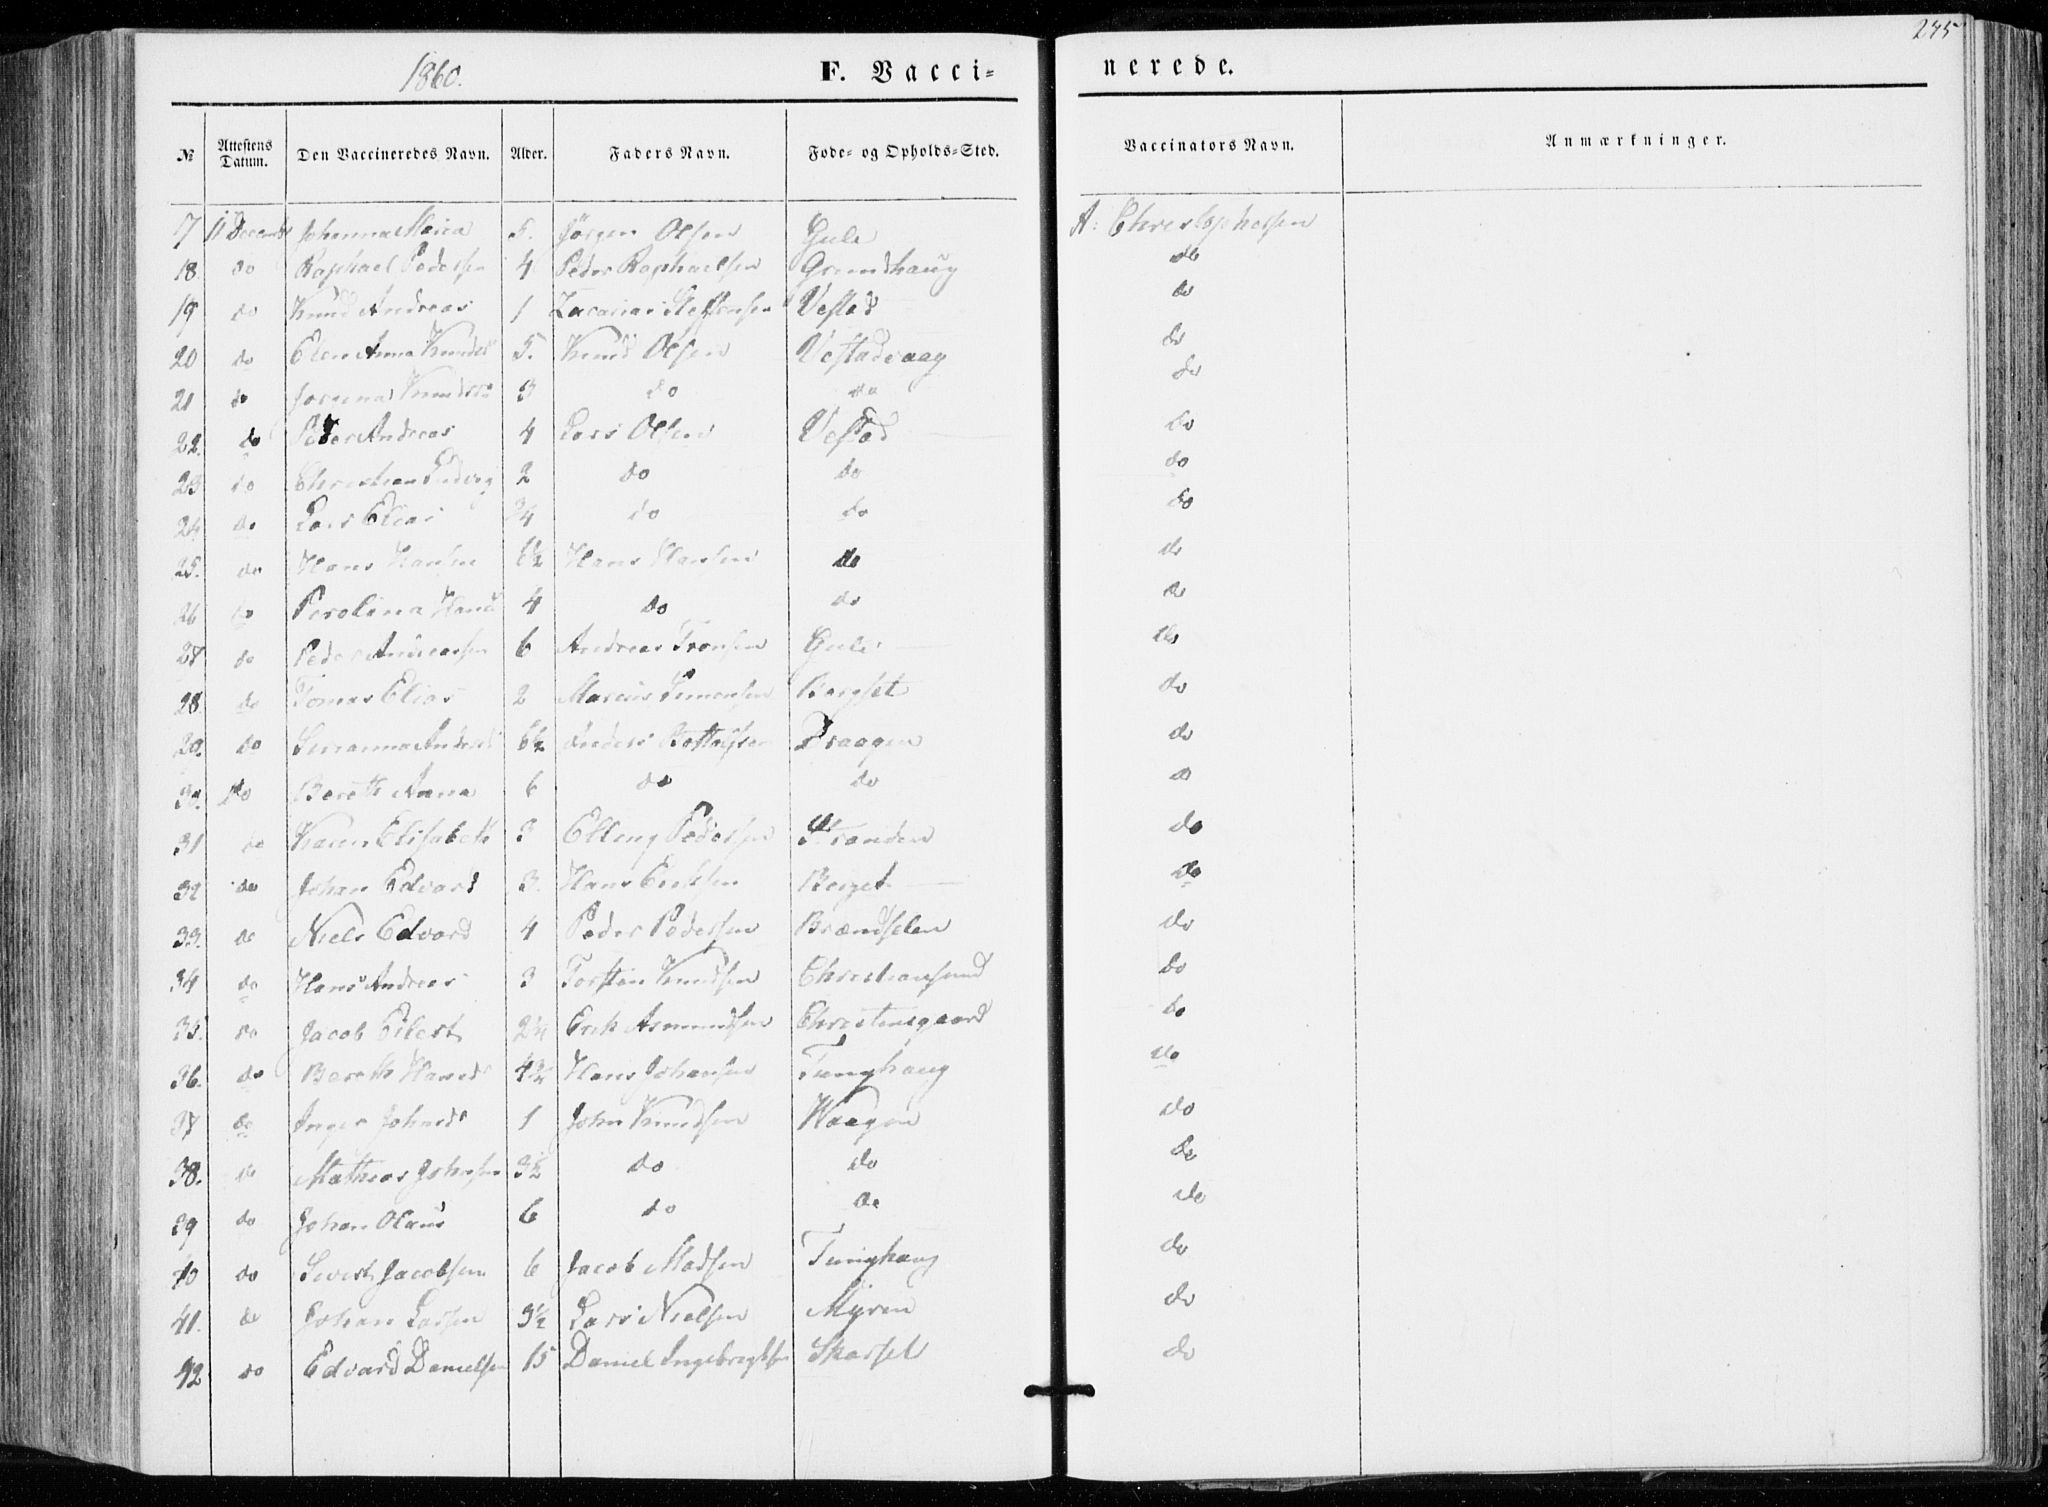 245
1860.
F. Vacci-
nerede.
№ Attestens Datum. Den Vaccineredes Navn. Alder. Faders Navn. Føde- og Opholds-Sted. Vaccinators Navn. Anmærkninger.
7 11 Decemb Johanna Maria 5. Jörgen Olsen Gule A: Christophersen
18. do Raphael Pedersen 4 Peder Raphaelsen Grundhaug do
19 do Knud Andreas 1 Zacarias Steffensen Vestad do
20 do Elen Anna Knudsd 5. Knud Olsen Vestadvaag do
21 do Knudsen 3 do do do
22. do Peder Andreas 4 Lars Olsen Vestad do
23 do Christian Ludvig 2 do do do
24 do Lars Elias 3/4 do do do
25. do Hans Hansen 6½ Hans Hansen do do
26 do Perolina Hansd 4 do do do
27 do Peder Andreassen 6 Andreas Tronsen Gule do
28. do Tomas Elias 2 Marcus Simensen Bergset do
29. do Andersd 6½ Anders Vraagen do
30. do Bereth Anna 6 do do do
31 do Karen Elisabeth 3 Elling Pedersen Stranden do
32 do Johan Edvard 3. Hans Eriksen Berget do
33. do Niels Edvard 4 Peder Pedersen Brændselen do
34 do Hans Andreas 3 Torsten Knudsen Christiansund do
35. do Jacob Eilert 2¼ Erik Asmundsen Christensgaard do
36. do Bereth Hansd 4¾ Hans Johansen Tunghaug do
37 do Inger Johnsd 1 John Knudsen Waagen do
38. do Mathias Johnsen 3½ do do do
39 do Johan Olaus 6 do do do
40 do Sivert Jacobsen 6 Jacob Madsen Tunghaug do
41. do Johan Larsen 3½ Lars Nielsen Myren do
42 do Edvard Danielsen 15 Daniel Ingebrigtsen Skarset do